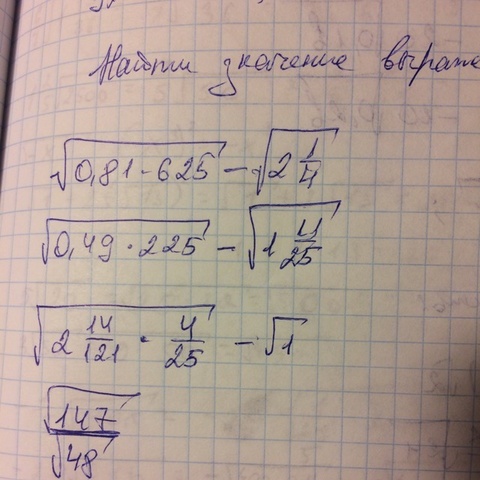 Найти значение выраже
√0,81 · 625 − √2 1/4
√0,49 · 225 − √1 4/25
√2 14/121 · 4/25 − √1
√147/√48